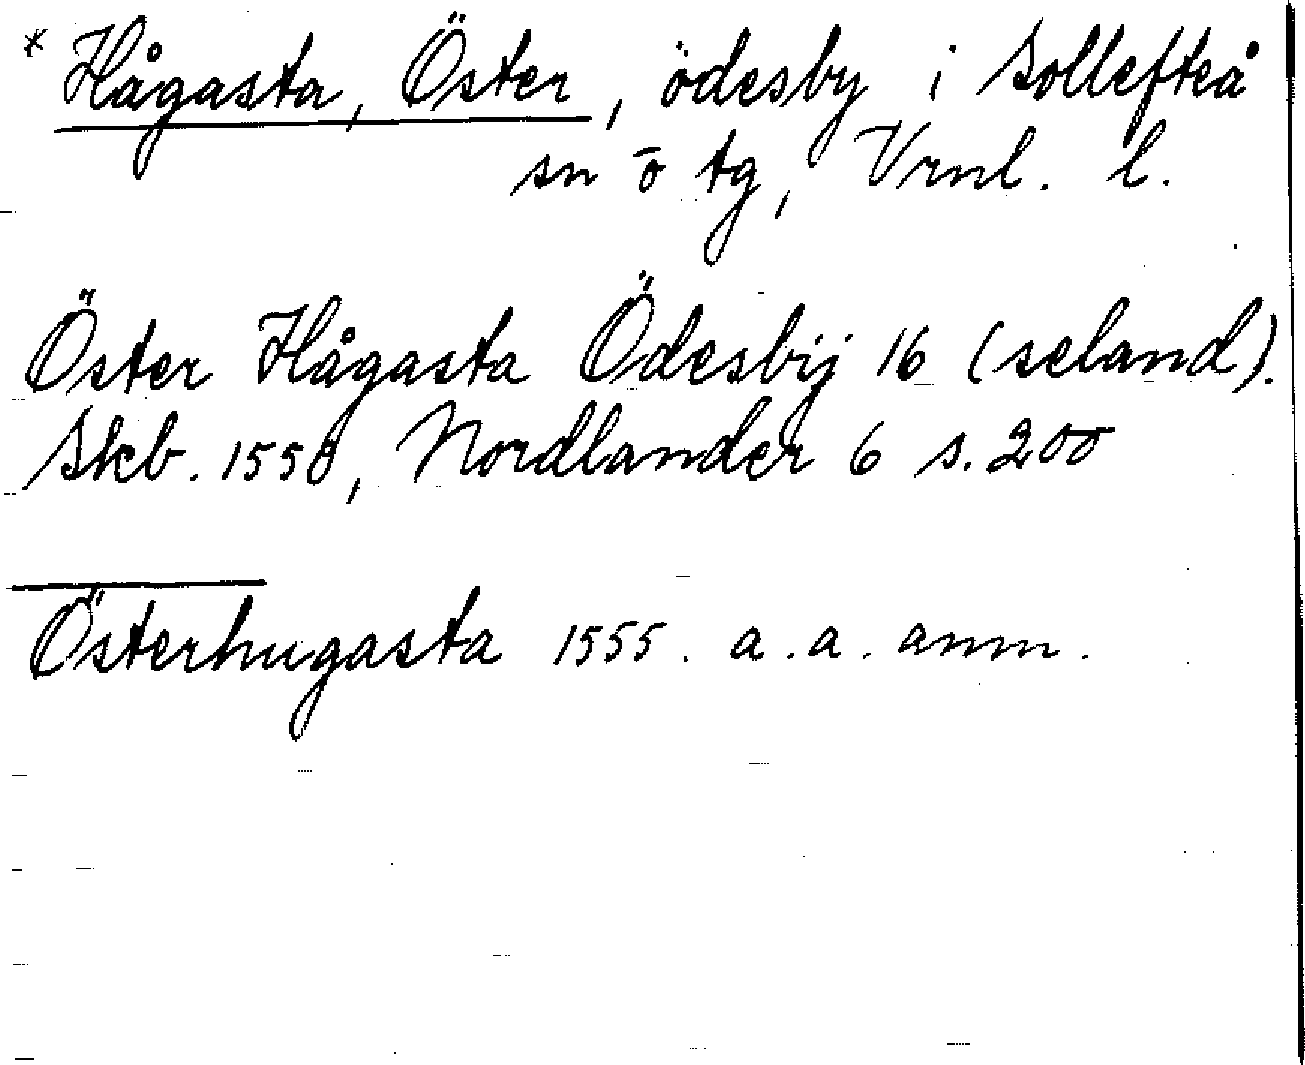 * Hågasta, Öster, ödesby i Sollefteå
sn o tg, Vrnl. l.
Öster Hågasta Ödesbij 16 (seland).
Skb. 1550, Nordlander 6 s. 200
Österhugasta 1555. a.a. anm.